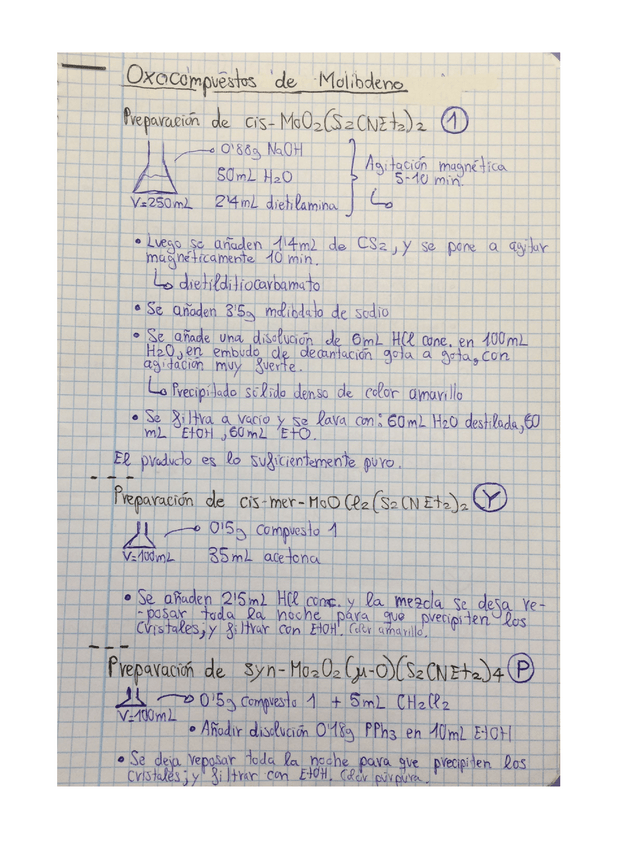 Oxocompuestos de Molibdeno
Preparación de cis-MoO2(S2CNEt2)2 1
0'88g NaOH
50mL H2O
V=250mL 2'4mL dietilamina
Agitación magnética
5-10 min.
• Luego se añaden 1'4mL de CS2, y se pone a agitar
magnéticamente 10 min.
↳ dietilditiocarbamato
• Se añaden 3'5g molibdato de sodio
• Se añade una disolución de 6mL HCl conc. en 100mL
H2O, en embudo de decantación gota a gota, con
agitación muy fuerte.
↳ Precipitado sólido denso de color amarillo
• Se filtra a vacío y se lava con: 60mL H2O destilada, 60
mL EtOH, 60mL EtO.
El producto es lo suficientemente puro.
Preparación de cis-mer-MoOCl2(S2CNEt2)2 Y
0'5g compuesto 1
V=100mL 35mL acetona
• Se añaden 2'5mL HCl conc. y la mezcla se deja re-
-posar toda la noche para que precipiten los
cristales, y filtrar con EtOH. Color amarillo.
Preparación de syn-Mo2O2(μ-O)(S2CNEt2)4 P
0'5g compuesto 1 + 5mL CH2Cl2
V=100mL
• Añadir disolución 0'18g PPh3 en 10mL EtOH
• Se deja reposar toda la noche para que precipiten los
cristales; y filtrar con EtOH. Color púrpura.